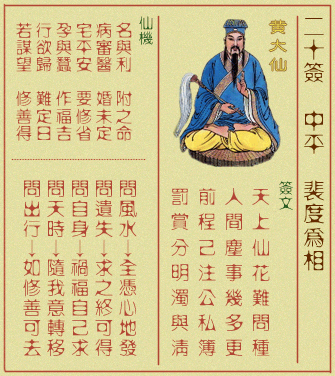 二十簽 中平 裴度為相
黃大仙
簽文
天上仙花難問種
人間塵事幾多更
前程己注公私簿
罰賞分明濁與清
仙機
名與利 附之命
病審醫 婚未定
宅平安 要修省
孕與蠶 作福吉
行欲歸 難定日
若謀望 修善得
問風水→全憑心地發
問遺失→求之終可得
問自身→禍福自己求
問天時→隨我意轉移
問出行→如修善可去